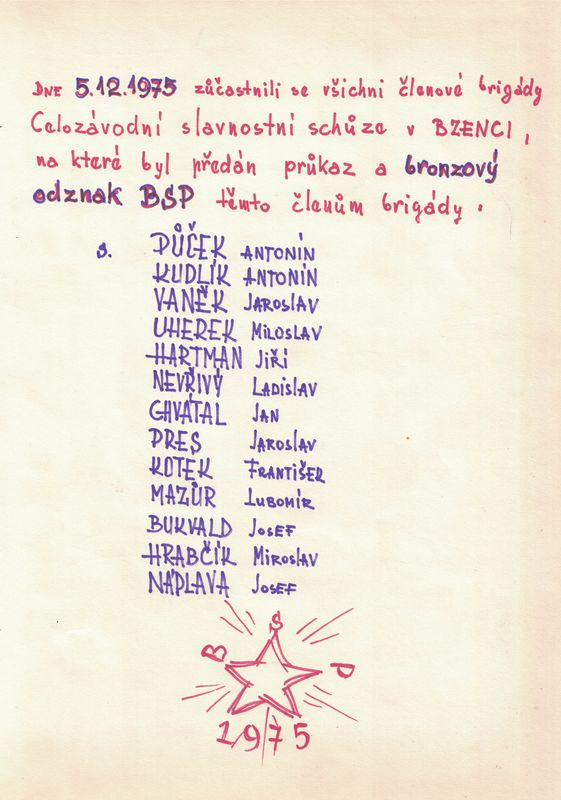 DNE 5.12.1975 zůčastnili se všichni členové brigády
Celozávodní slavnostní schůze v BZENCI,
na které byl předán průkaz a bronzový
odznak BSP těmto členům brigády.
s. DŮČEK ANTONÍN
KUDLÍK ANTONÍN
VANĚK JAROSLAV
UHEREK MILOSLAV
HARTMAN JIŘÍ
NEVŘIVÝ LADISLAV
GHVÁTAL JAN
PRES JAROSLAV
KOTEK FRANTIŠEK
MAZŮR LUBOMÍR
BUKVALD JOSEF
HRABČÍK MIROSLAV
NÁPLAVA JOSEF
B S P
1975